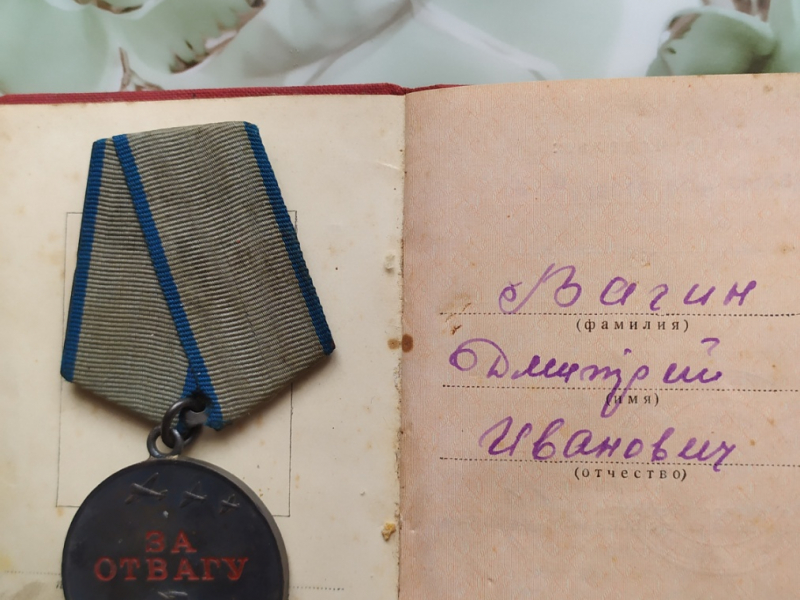 ЗА
ОТВАГУ
Вагин
(фамилия)
Дмитрий
(имя)
Иванович
(отчество)